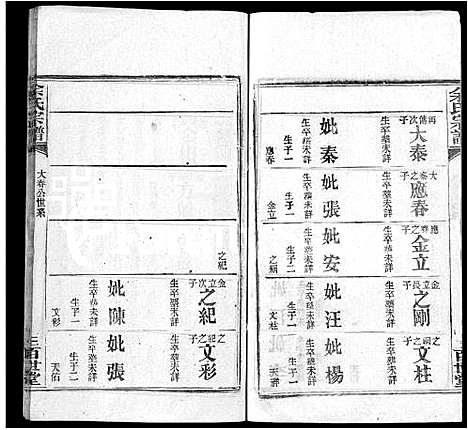 余氏宗譜
再傳次子
大泰
生卒葬未詳
妣秦
生卒葬未詳
生子一
應春
大泰之子
應春
生卒葬未詳
妣張
生卒葬未詳
生子一
金立
應春之子
金立
生卒葬未詳
妣安
生卒葬未詳
生子二
之剛
之紀
金立長子
之剛
生卒葬未詳
妣汪
生卒葬未詳
生子一
文柱
之剛之子
文柱
生卒葬未詳
妣楊
生卒葬未詳
生子一
百世堂
余氏宗譜
大春公世系
三百世堂
金立次子
之紀
生卒葬未詳
妣陳
生卒葬未詳
生子一
文彩
之紀之子
文彩
生卒葬未詳
妣張
生卒葬未詳
生子一
天佑